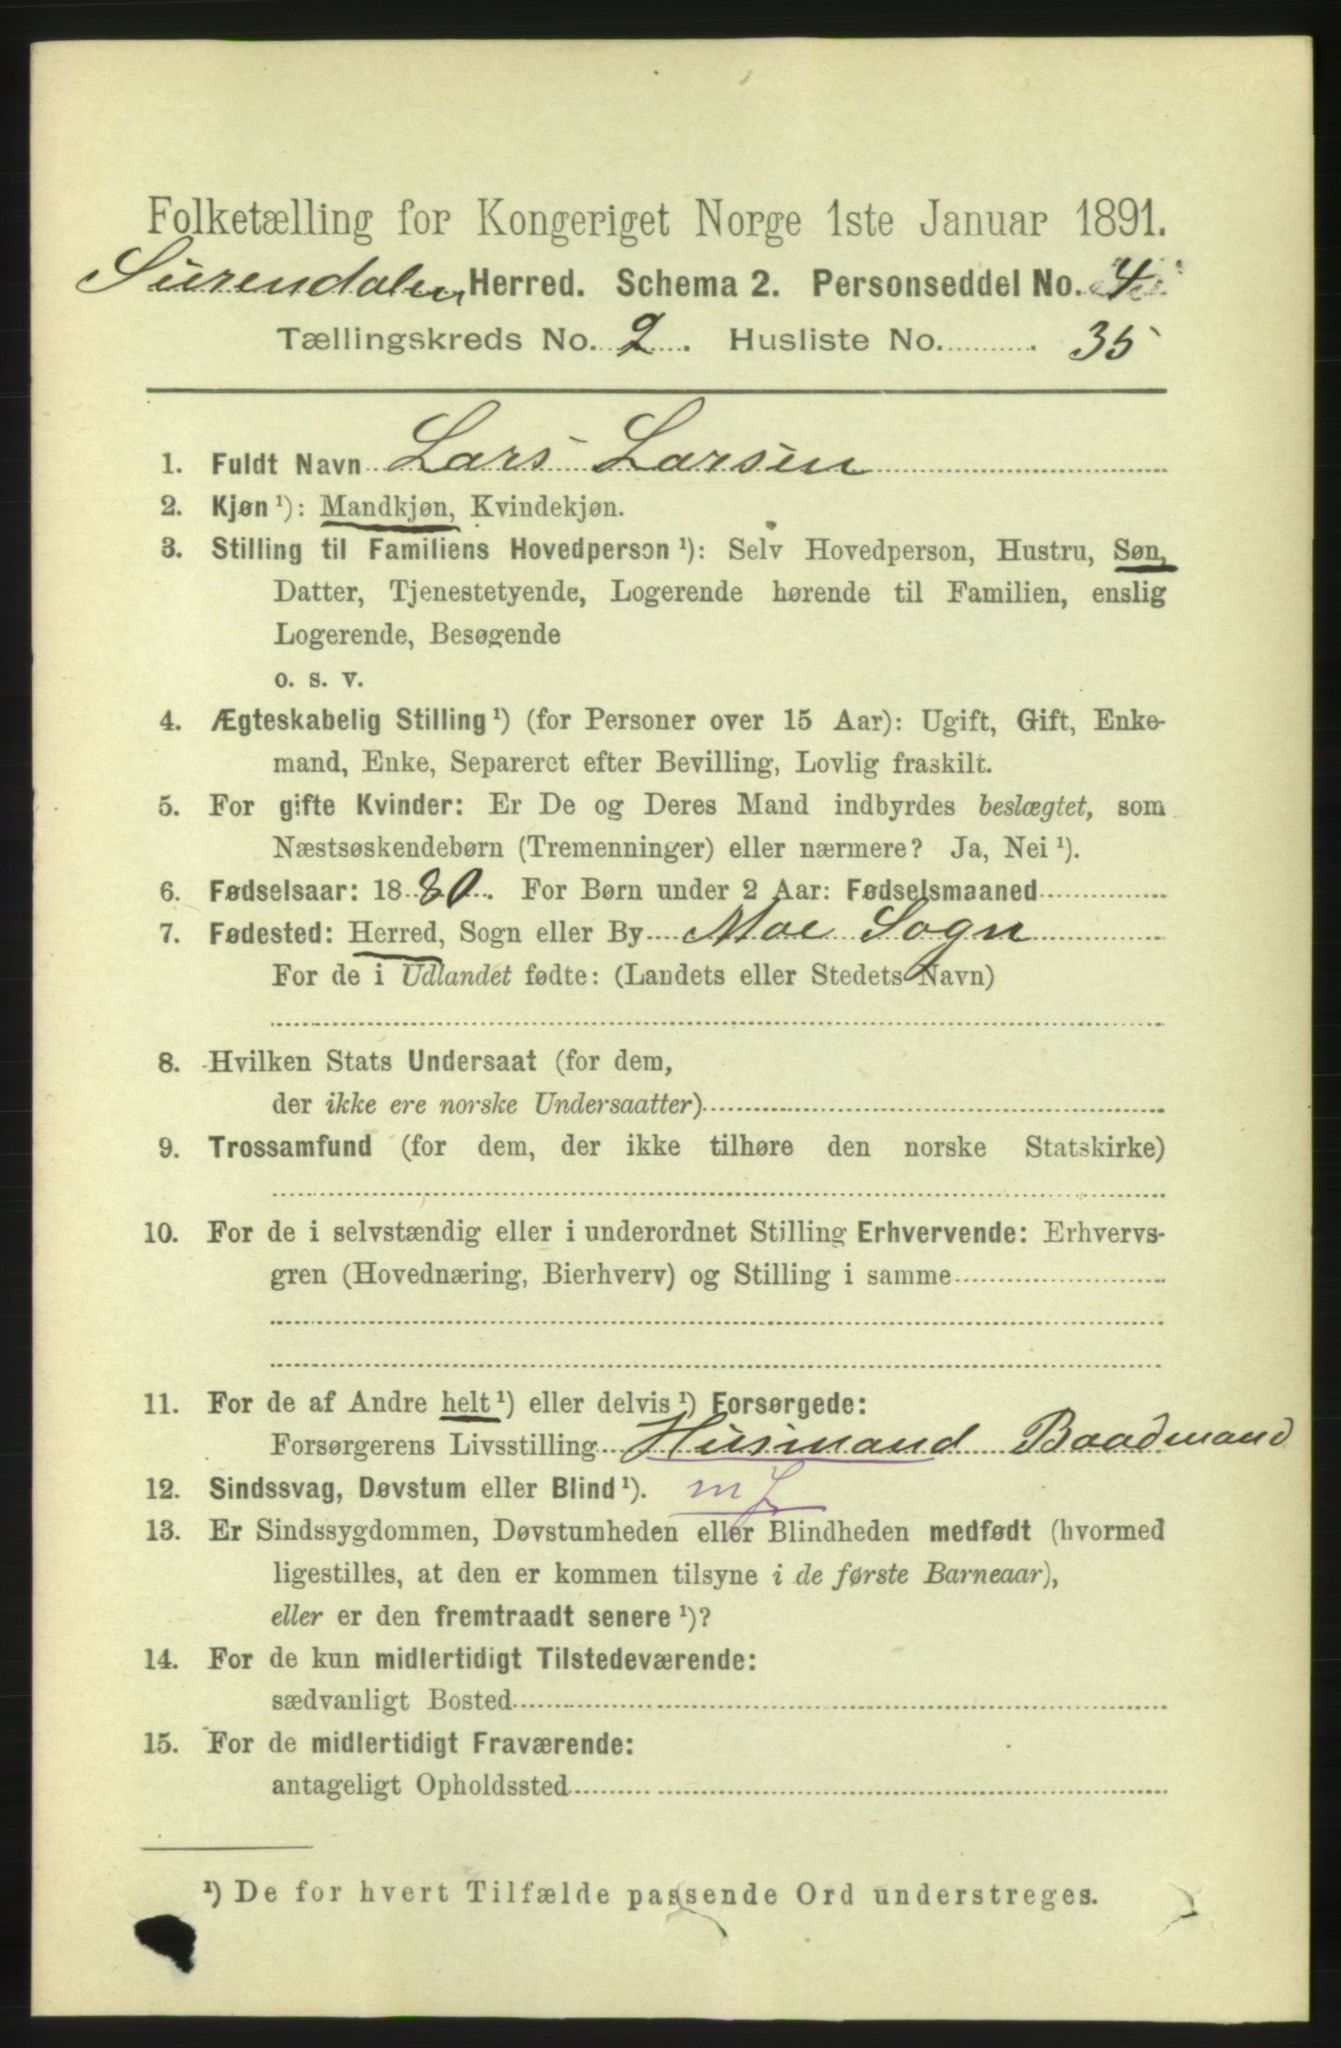 Folketælling for Kongeriget Norge 1ste Januar 1891.
Surendalen Herred. Schema 2. Personseddel No. 4
Tællingskreds No. 2. Husliste No. 35
1. Fuldt Navn Lars Larsen
2. Kjøn¹): Mandkjøn, Kvindekjøn.
3. Stilling til Familiens Hovedperson¹): Selv Hovedperson, Hustru, Søn,
Datter, Tjenestetyende, Logerende hørende til Familien, enslig
Logerende, Besøgende
o. s. v.
4. Ægteskabelig Stilling¹) (for Personer over 15 Aar): Ugift, Gift, Enke-
mand, Enke, Separeret efter Bevilling, Lovlig fraskilt.
5. For gifte Kvinder: Er De og Deres Mand indbyrdes beslægtet, som
Næstsøskendebørn (Tremenninger) eller nærmere? Ja, Nei¹).
6. Fødselsaar: 1880. For Børn under 2 Aar: Fødselsmaaned
7. Fødested: Herred, Sogn eller By Moe Sogn
For de i Udlandet fødte: (Landets eller Stedets Navn)
8. Hvilken Stats Undersaat (for dem,
der ikke ere norske Undersaatter)
9. Trossamfund (for dem, der ikke tilhøre den norske Statskirke)
10. For de i selvstændig eller i underordnet Stilling Erhvervende: Erhvervs-
gren (Hovednæring, Bierhverv) og Stilling i samme
11. For de af Andre helt¹) eller delvis¹) Forsørgede:
Forsørgerens Livsstilling Husmand Baadmand
12. Sindssvag, Døvstum eller Blind¹).
13. Er Sindssygdommen, Døvstumheden eller Blindheden medfødt (hvormed
ligestilles, at den er kommen tilsyne i de første Barneaar),
eller er den fremtraadt senere¹)?
14. For de kun midlertidigt Tilstedeværende:
sædvanligt Bosted
15. For de midlertidigt Fraværende:
antageligt Opholdssted
¹) De for hvert Tilfælde passende Ord understreges.